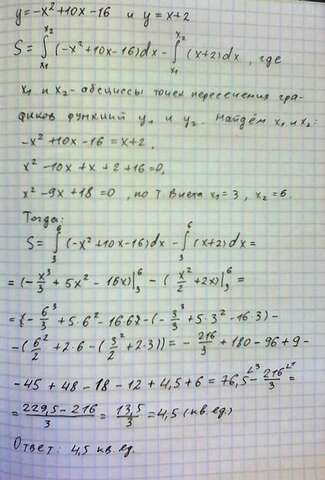 y=-x²+10x-16 и y=x+2
S = ∫_{x₁}^{x₂} (-x²+10x-16)dx - ∫_{x₁}^{x₂} (x+2)dx, где
x₁ и x₂ - абсциссы точек пересечения гра-
фиков функций y₁ и y₂. Найдём x₁ и x₂:
-x²+10x-16 = x+2,
x²-10x+x+2+16=0,
x²-9x+18=0, по т. Виета x₁=3, x₂=6.
Тогда:
S = ∫_{3}^{6} (-x²+10x-16)dx - ∫_{3}^{6} (x+2)dx =
= (-x³/3 + 5x² - 16x)|_{3}^{6} - (x²/2 + 2x)|_{3}^{6} =
= (-6³/3 + 5·6² - 16·6) - (-3³/3 + 5·3² - 16·3) -
- (6²/2 + 2·6 - (3²/2 + 2·3)) = -216/3 + 180 - 96 + 9 -
- 45 + 48 - 18 - 12 + 4,5 + 6 = 76,5 - 216/3 =
= (229,5 - 216)/3 = 13,5/3 = 4,5 (кв.ед.)
Ответ: 4,5 кв.ед.